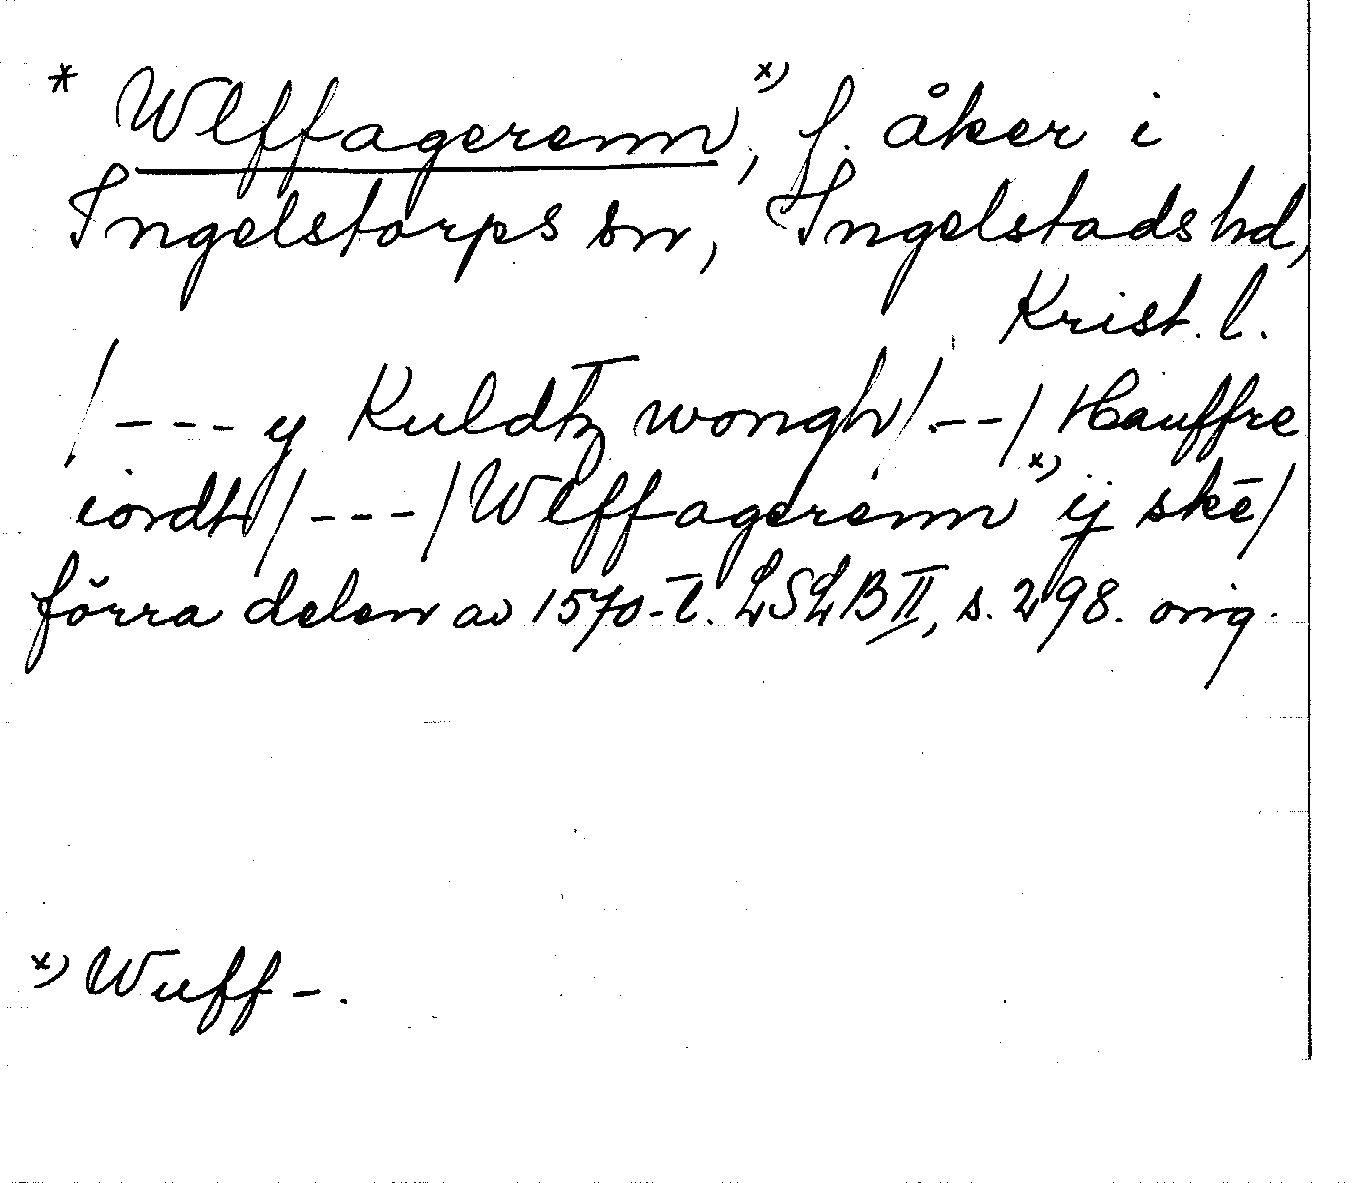 * Wlffagerenn,ˣ⁾ f. åker i
Ingelstorps sn, Ingelstads hd,
Krist. l.
/--- y Kuldtz wongh/--/ Hauffre
iordh/---/Wlffagerennˣ⁾ ij skē/
förra delen av 1570-t. LSLB II, s. 298. orig.
ˣ⁾ Wuff-.